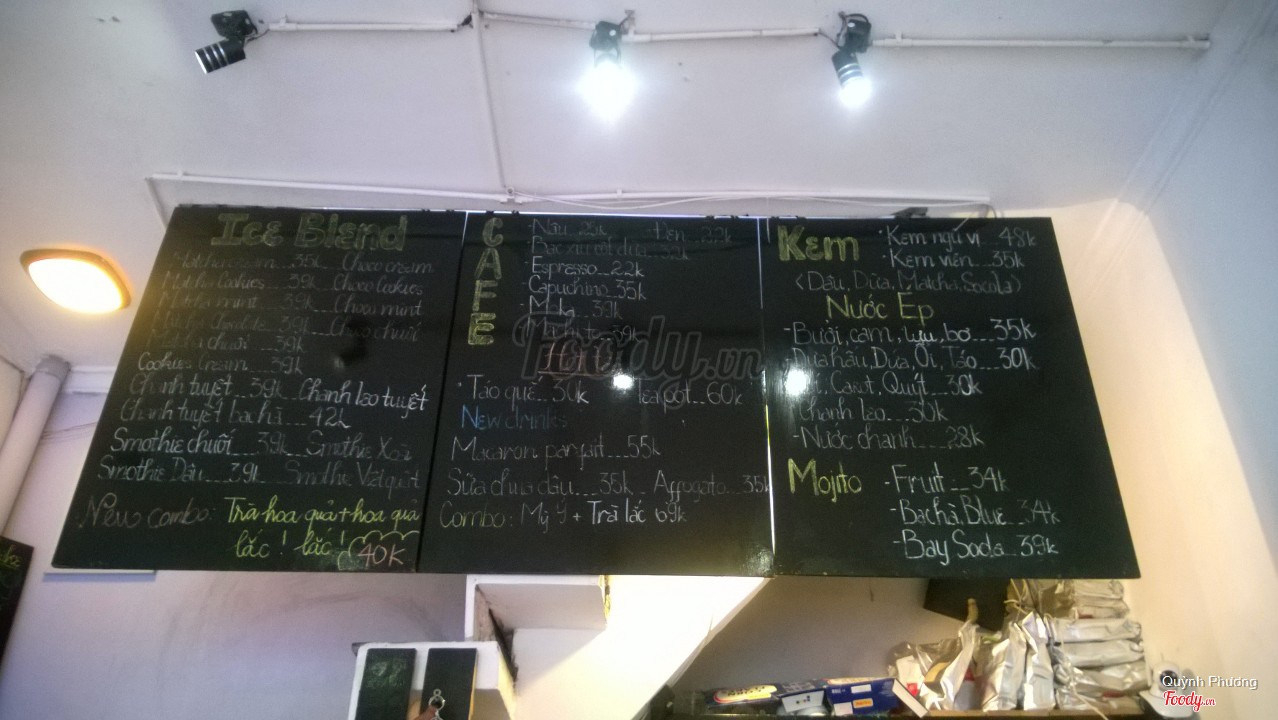 Ice Blend
Matcha cream 35k Choco cream
Matcha cookies 39k Choco Cookies
Matcha mint 39k Choco mint
39k Choco chuối
Matcha chuối 39k
Cookies Cream 39k
Chanh tuyết 39k Chanh leo tuyết
Chanh tuyết bạc hà 42k
Smothie chuối 39k Smothie Xoài
Smothie Dâu 39k Smothie Việt quất
New combo: Trà hoa quả + hoa quả
lắc! lắc! 40k
CAFE
- Nâu Đen 22k
Bạc xỉu cốt dừa 39k
Espresso 22k
Capuchino 35k
39k
39k
Hot
Táo quế 30k Teapot 60k
New drinks
Macaron parfait 55k
Sữa chua dâu 35k Affogato 35k
Combo: Mỳ Ý + Trà lắc 69k
Kem
• Kem ngũ vị 48k
• Kem viên 35k
(Dâu, Dừa, Matcha, Socola)
Nước Ép
- Bưởi, cam, lựu, bơ 35k
- Dưa hấu, Dứa, Ổi, Táo 30k
Carot, Quýt 30k
Chanh leo 30k
- Nước chanh 28k
Mojito
- Fruit 34k
- Bạc hà, Blue 34k
- Bay Soda 39k
Foody.vn
Quỳnh Phương
Foody.vn